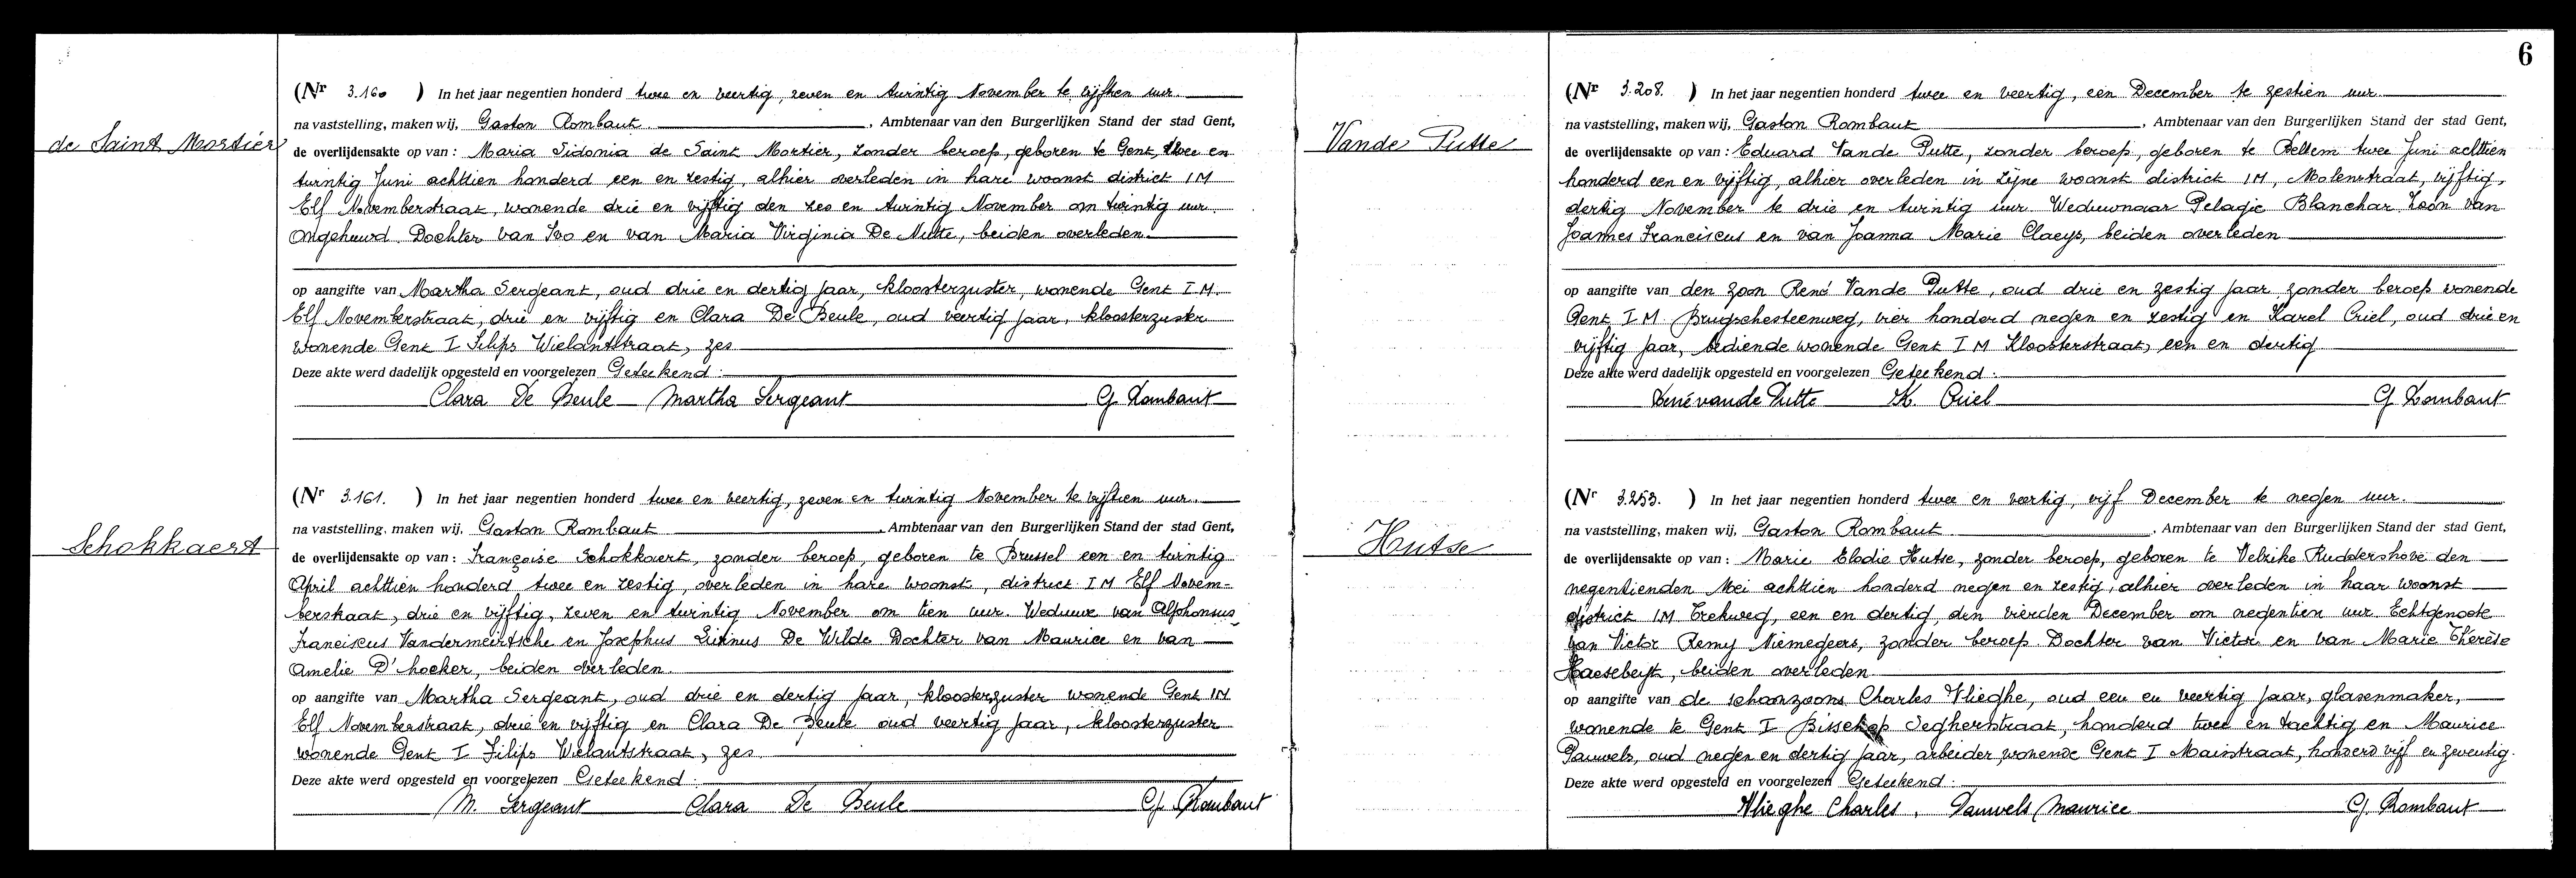 6
de Saint Mortier
(Nr 3.160 ) In het jaar negentien honderd twee en veertig, zeven en twintig November te vijftien uur.
na vaststelling, maken wij, Gaston Rombaut , Ambtenaar van den Burgerlijken Stand der stad Gent,
de overlijdensakte op van : Maria Sidonia de Saint Mortier, zonder beroep, geboren te Gent, twee en
twintig Juni achttien honderd een en zestig, alhier overleden in hare woonst district I M
Elf Novemberstraat, wonende drie en vijftig den zes en twintig November om twintig uur.
Ongehuwd. Dochter van Ivo en van Maria Virginia De Nutte, beiden overleden.
op aangifte van Martha Sergeant, oud drie en dertig jaar, kloosterzuster, wonende Gent I M.
Elf Novemberstraat, drie en vijftig en Clara De Beule, oud veertig jaar, kloosterzuster
wonende Gent I Filips Wielantstraat, zes
Deze akte werd dadelijk opgesteld en voorgelezen Geteekend :
Clara De Beule Martha Sergeant G Rombaut
Schokkaert
(Nr 3.161. ) In het jaar negentien honderd twee en veertig, zeven en twintig November te vijftien uur.
na vaststelling, maken wij, Gaston Rombaut , Ambtenaar van den Burgerlijken Stand der stad Gent,
de overlijdensakte op van : Françoise Schokkaert, zonder beroep, geboren te Brussel een en twintig
April achttien honderd twee en zestig, overleden in hare woonst, district I M Elf Novem-
berstraat, drie en vijftig, zeven en twintig November om tien uur. Weduwe van Alphonsus
Franciscus Vandermeirtsche en Josephus Livinus De Wilde Dochter van Maurice en van
Amelie D'hoeker, beiden overleden
op aangifte van Martha Sergeant, oud drie en dertig jaar, kloosterzuster wonende Gent I M
Elf Novemberstraat, drie en vijftig en Clara De Beule oud veertig jaar, kloosterzuster
wonende Gent I Filips Wielantstraat, zes
Deze akte werd opgesteld en voorgelezen Geteekend :
M. Sergeant Clara De Beule G Rombaut
Vande Putte
(Nr 3.208. ) In het jaar negentien honderd twee en veertig, een December te zestien uur.
na vaststelling, maken wij, Gaston Rombaut , Ambtenaar van den Burgerlijken Stand der stad Gent,
de overlijdensakte op van : Eduard Vande Putte, zonder beroep, geboren te Bellem twee Juni achttien
honderd een en vijftig, alhier overleden in zijne woonst district I M, Molenstraat, vijftig,
dertig November te drie en twintig uur Weduwnaar Pelagie Blanchar. Zoon van
Joannes Franciscus en van Joanna Marie Claeys, beiden overleden
op aangifte van den zoon René Vande Putte, oud drie en zestig jaar zonder beroep wonende
Gent I M Brugschesteenweg, vier honderd negen en zestig en Karel Criel, oud drie en
vijftig jaar, bediende wonende Gent I M Kloosterstraat, een en dertig
Deze akte werd dadelijk opgesteld en voorgelezen Geteekend :
René vande Putte K. Criel G Rombaut
Hutse
(Nr 3.253. ) In het jaar negentien honderd twee en veertig, vijf December te negen uur.
na vaststelling, maken wij, Gaston Rombaut , Ambtenaar van den Burgerlijken Stand der stad Gent,
de overlijdensakte op van : Marie Elodie Hutse, zonder beroep, geboren te Velzike Ruddershove den
negentienden Mei achttien honderd negen en zestig, alhier overleden in haar woonst
district I M Trekweg, een en dertig, den vierden December om negentien uur Echtgenoote
van Victor Remy Niemegeers, zonder beroep. Dochter van Victor en van Marie Thérèse
Haesebeyt, beiden overleden
op aangifte van de schoonzoons Charles Vlieghe, oud een en veertig jaar, glasenmaker,
wonende te Gent I Bisschop Segherstraat, honderd twee en tachtig en Maurice
Pauwels, oud negen en dertig jaar, arbeider wonende Gent I Mainstraat, honderd vijf en zeventig.
Deze akte werd opgesteld en voorgelezen Geteekend :
Vlieghe Charles, Pauwels Maurice G. Rombaut